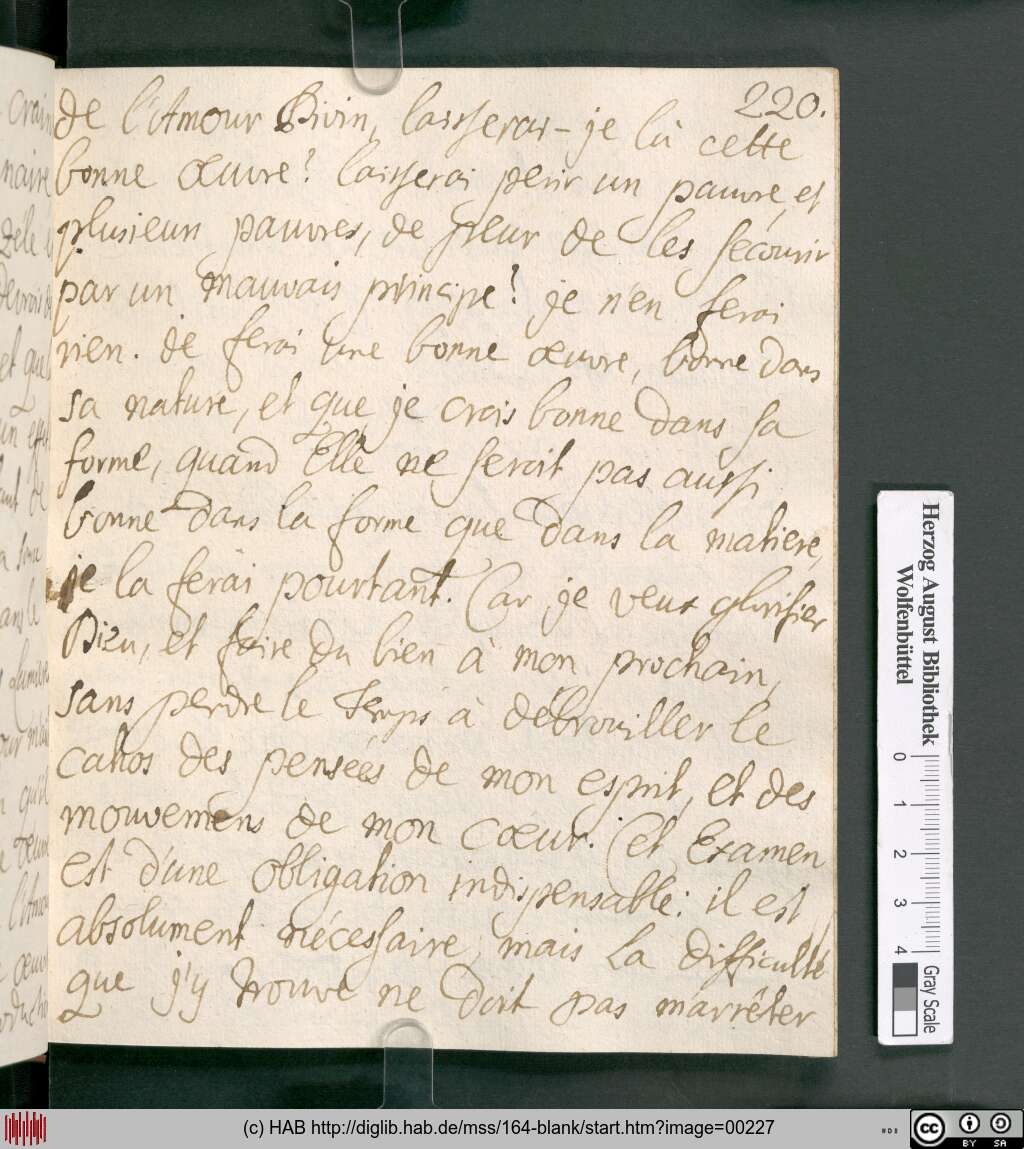 220.
de l'Amour Divin, laisserai-je là cette
bonne œuvre? laisserai perir un pauvre, et
plusieurs pauvres, de peur de les secourir
par un mauvais principe? je n'en ferai
rien. je ferai une bonne œuvre, bonne dans
sa nature, et que je crois bonne dans sa
forme, quand Elle ne seroit pas aussi
bonne dans la forme que dans la matiere,
je la ferai pourtant. Car je veux glorifier
Dieu, et faire du bien à mon prochain,
sans perdre le temps à débrouiller le
cahos des pensées de mon esprit, et des
mouvemens de mon cœur. Cet Examen
est d'une obligation indispensable: il est
absolument nécessaire, mais la difficulté
que j'y trouve ne doit pas m'arrêter
Herzog August Bibliothek
Wolfenbüttel
0 1 2 3 4
Gray Scale
(c) HAB http://diglib.hab.de/mss/164-blank/start.htm?image=00227
cc BY SA